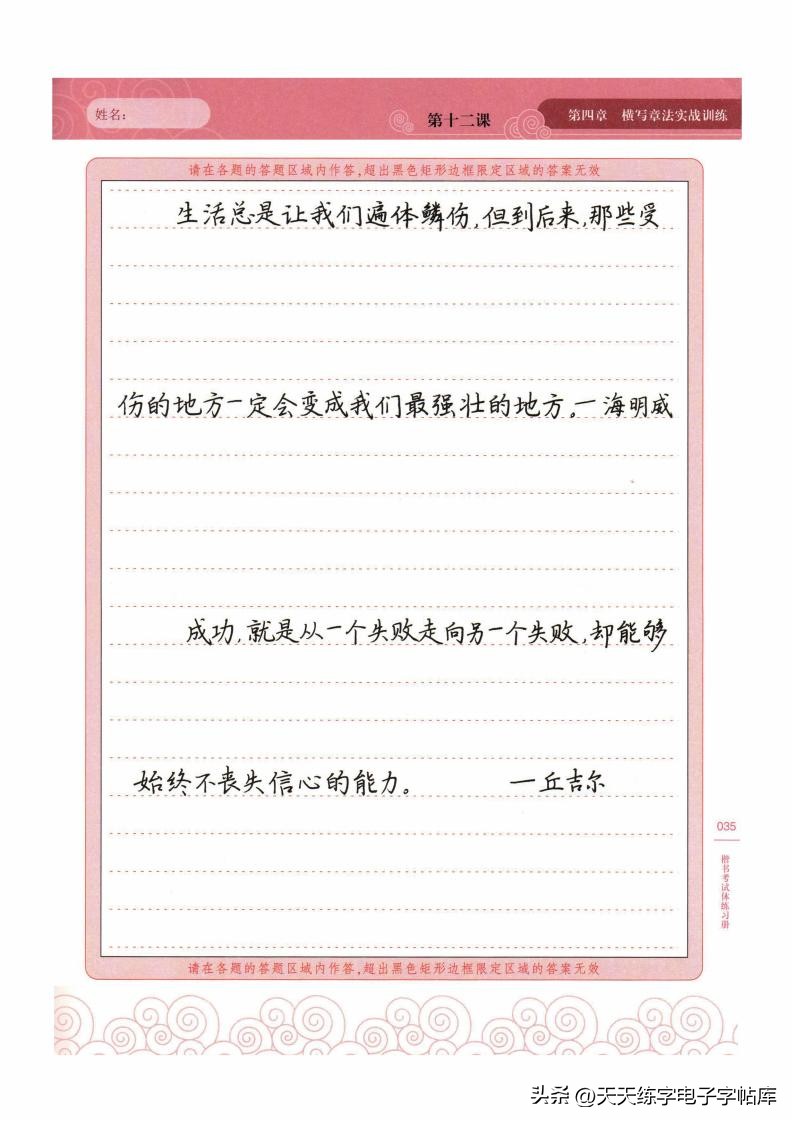 姓名：
第十二课
第四章 横写章法实战训练
请在各题的答题区域内作答，超出黑色矩形边框限定区域的答案无效
生活总是让我们遍体鳞伤，但到后来，那些受
伤的地方一定会变成我们最强壮的地方。一海明威
成功，就是从一个失败走向另一个失败，却能够
始终不丧失信心的能力。 一丘吉尔
035
楷书考试体练习册
请在各题的答题区域内作答，超出黑色矩形边框限定区域的答案无效
头条 @天天练字电子字帖库